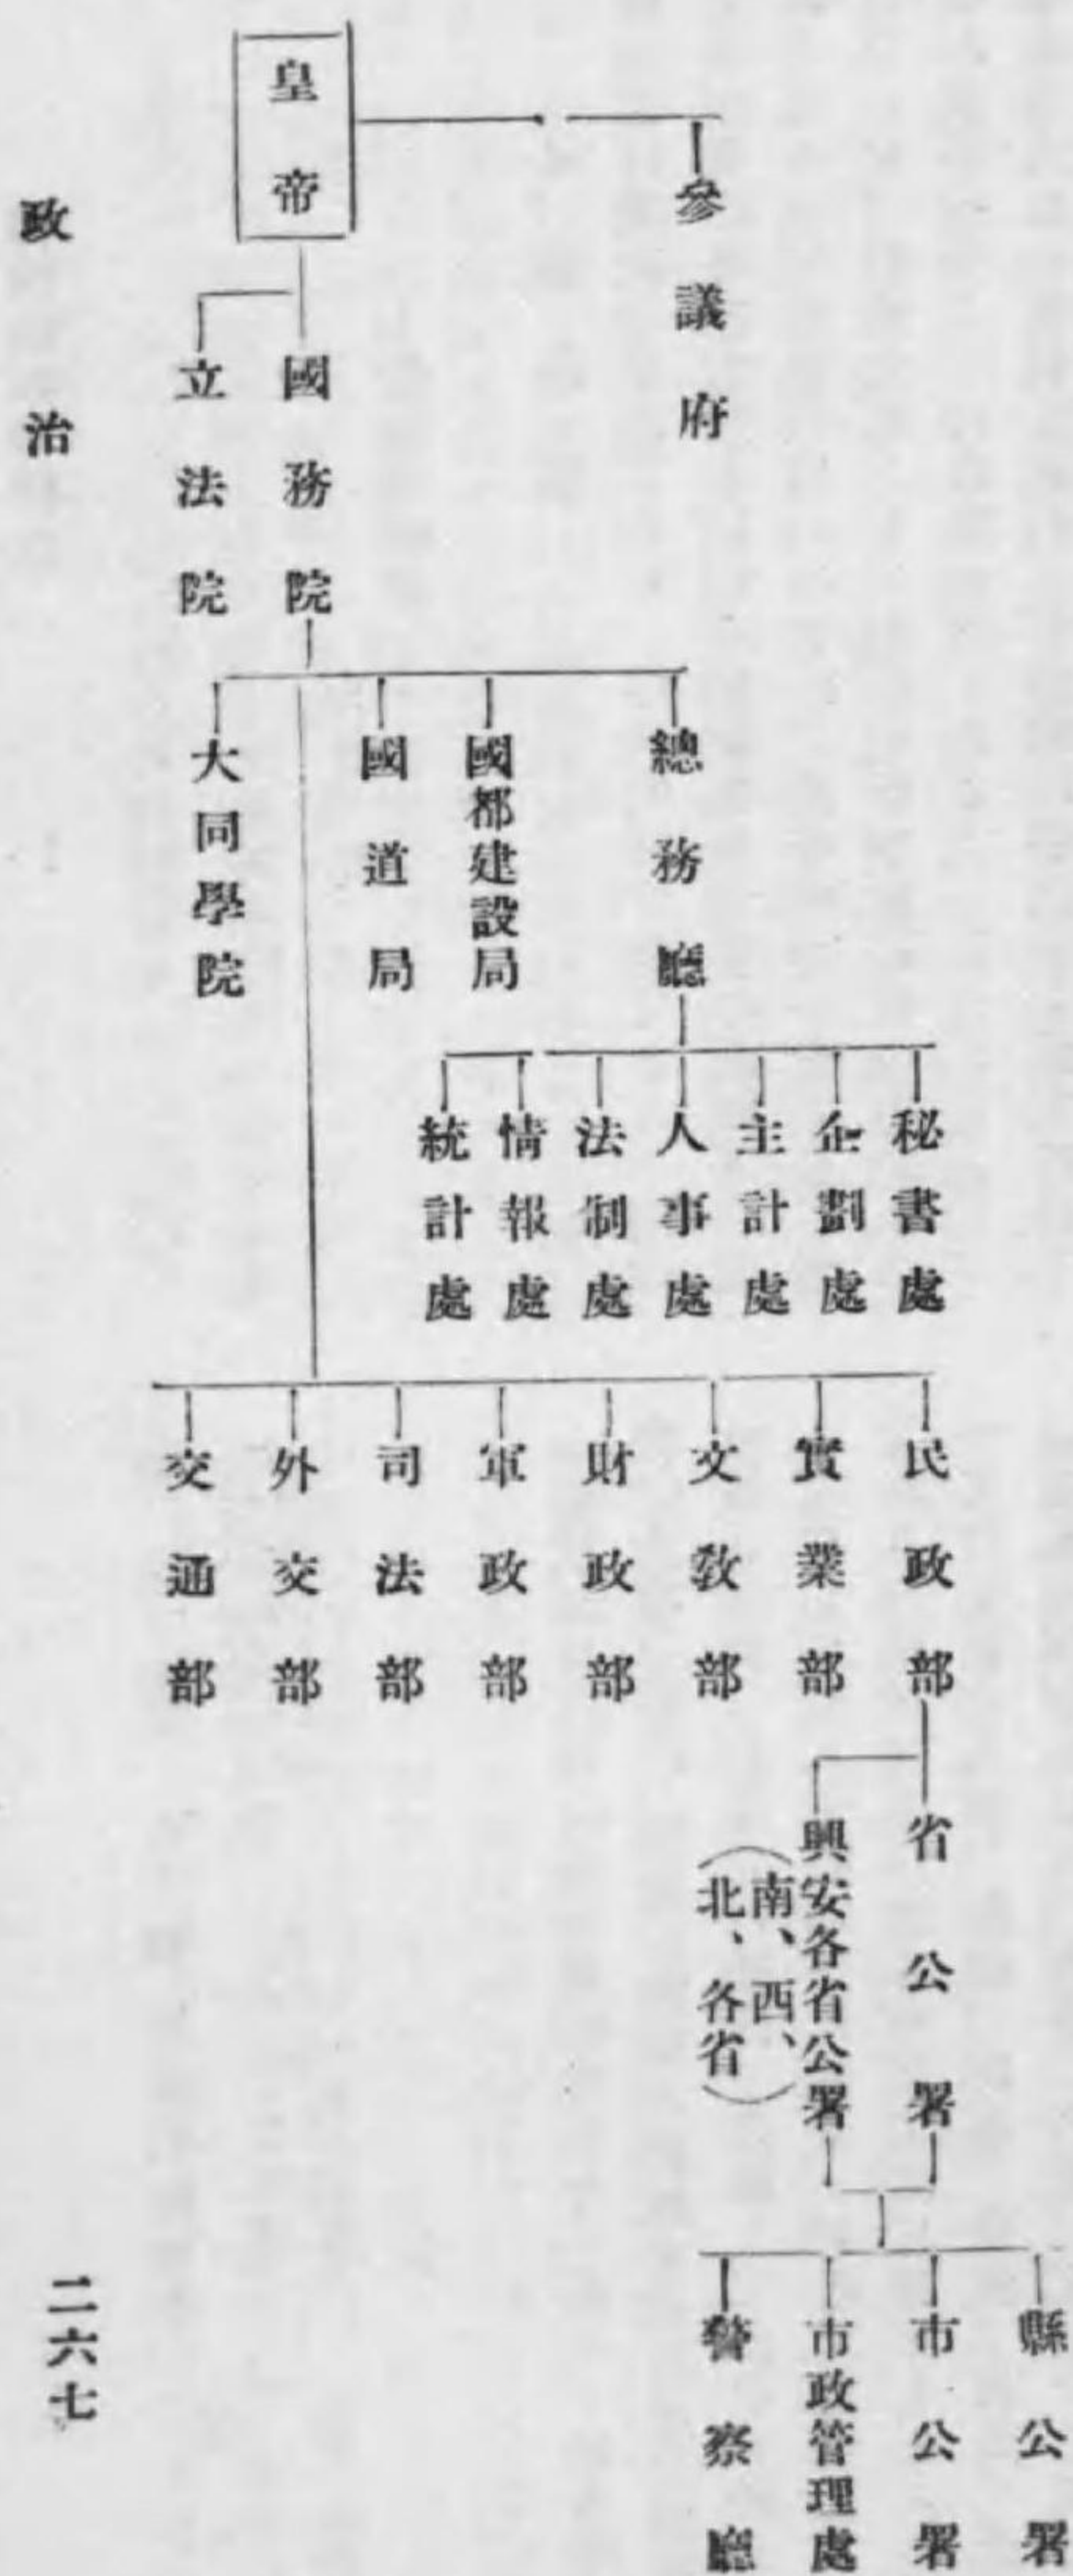 參議府
皇帝
國務院
立法院
總務廳
國都建設局
國道局
大同學院
秘書處
企劃處
主計處
人事處
法制處
情報處
統計處
民政部
實業部
文敎部
財政部
軍政部
司法部
外交部
交通部
省公署
興安各省公署
(南、西、
北、各省)
縣公署
市公署
市政管理處
警察廳
政治
二六七